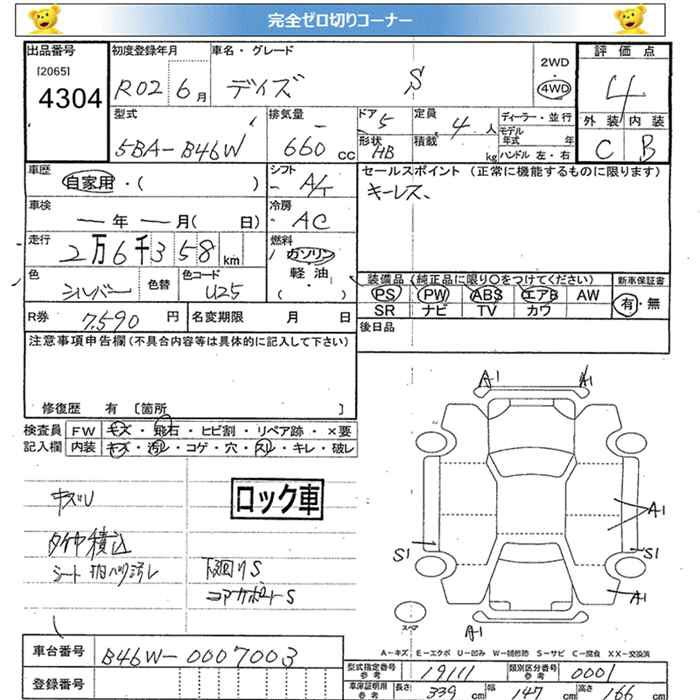 完全ゼロ切りコーナー
出品番号 初度登録年月 車名・グレード 2WD 評価点
[2065]
4304 R02 6月 デイズ S 4WD 4
型式 排気量 ドア 5 定員 ディーラー・並行 外装 内装
5BA-B46W 660 cc 形状 HB 積載 4人 kg モデル年式 年 ハンドル 左・右 C B
車歴 シフト セールスポイント (正常に機能するものに限ります)
自家用・( ) A/T キーレス、
車検 冷房
ー年ー月( 日) AC
走行 燃料
2万6千358km ガソリン
軽油
( )
色 色替 色コード 装備品 (純正品に限り〇をつけてください) 新車保証書
シルバー U25 PS PW ABS エアB AW 有・無
SR ナビ TV カワ
R券 7,590円 名変期限 月 日 後日品
注意事項申告欄(不具合内容等は具体的に記入して下さい)
修復歴 有 [箇所 ]
検査員 FW キズ・飛石・ヒビ割・リペア跡・×要
記入欄 内装 キズ・汚レ・コゲ・穴・スレ・キレ・破レ
A1 A1
キズU ロック車
タイヤ積込 A1
S1 S1
下廻りS
コアサポートS
A1
スペア
A1
A-キズ、E-エクボ U-凹み W-補修跡 S-サビ C-腐食 XX-交換済
車台番号 B46W-0007003
型式指定番号 参考 19111 類別区分番号 参考 0001
登録番号
車庫証明用 参考 長さ 339 cm 幅 147 cm 高さ 166 cm